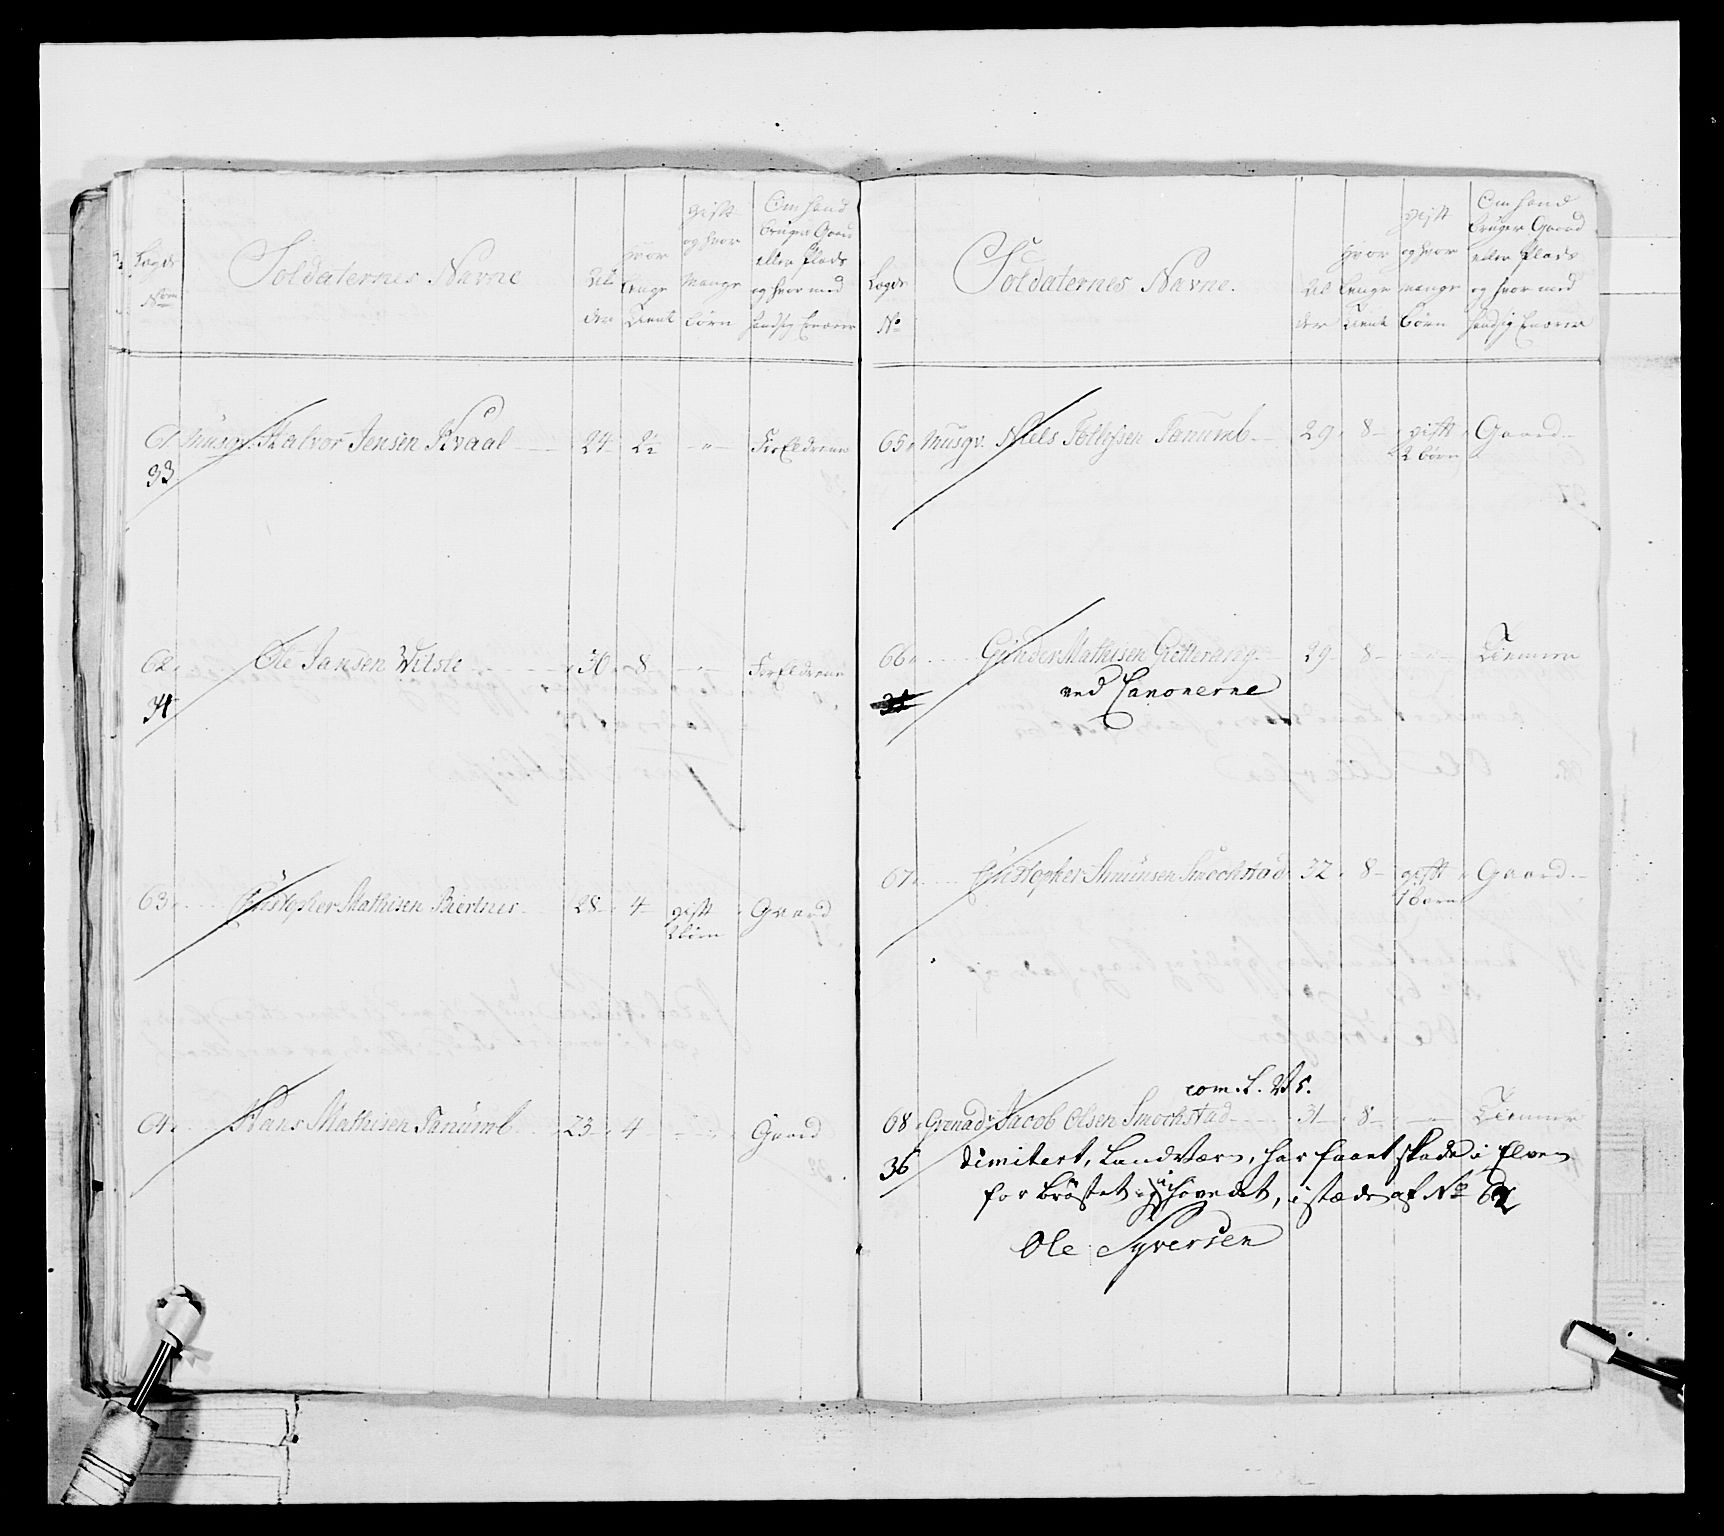 Lægds Nom
Soldaternes Navne
Alderen
hvor Længe Tient
gift og hvor Mange børn
Om hand bruger Gaard eller Plads og hvor med hand sig Ernærer
61 Musqv. Halvor Jensen Kvaal 24 2½ " For Eldrene
33
62 Ole Jansen Wilsle 30 8 " For Eldrene
34
63 Christopher Mathisen Biertnes 28 4 gift 2 børn Gaard
64 Hans Mathisen Tanumb 23 4 " Gaard
Lægds No
Soldaternes Navne.
Alderen
hvor Længe Tient
gift og hvor mange børn
Om hand bruger Gaard eller Plads og hvor med hand sig Ernærer
65 Musqv. Niels Tollefsen Tanumb 29 8 gift 2 børn Gaard
66 Gunder Mathisen Gitterang 29 8 Tienner
ved Canonerne
67 Christopher Amunsen Smochstad 32 8 gift 1 Barn Gaard
com. L. V. s.
68 Grenad: Jacob Olsen Smochstad 31 8 " Tienner
36 dimitert, Landværn, har faaet skade i Elven
for brøstet og i hovedet, i stæde af No 62
Ole Syversen